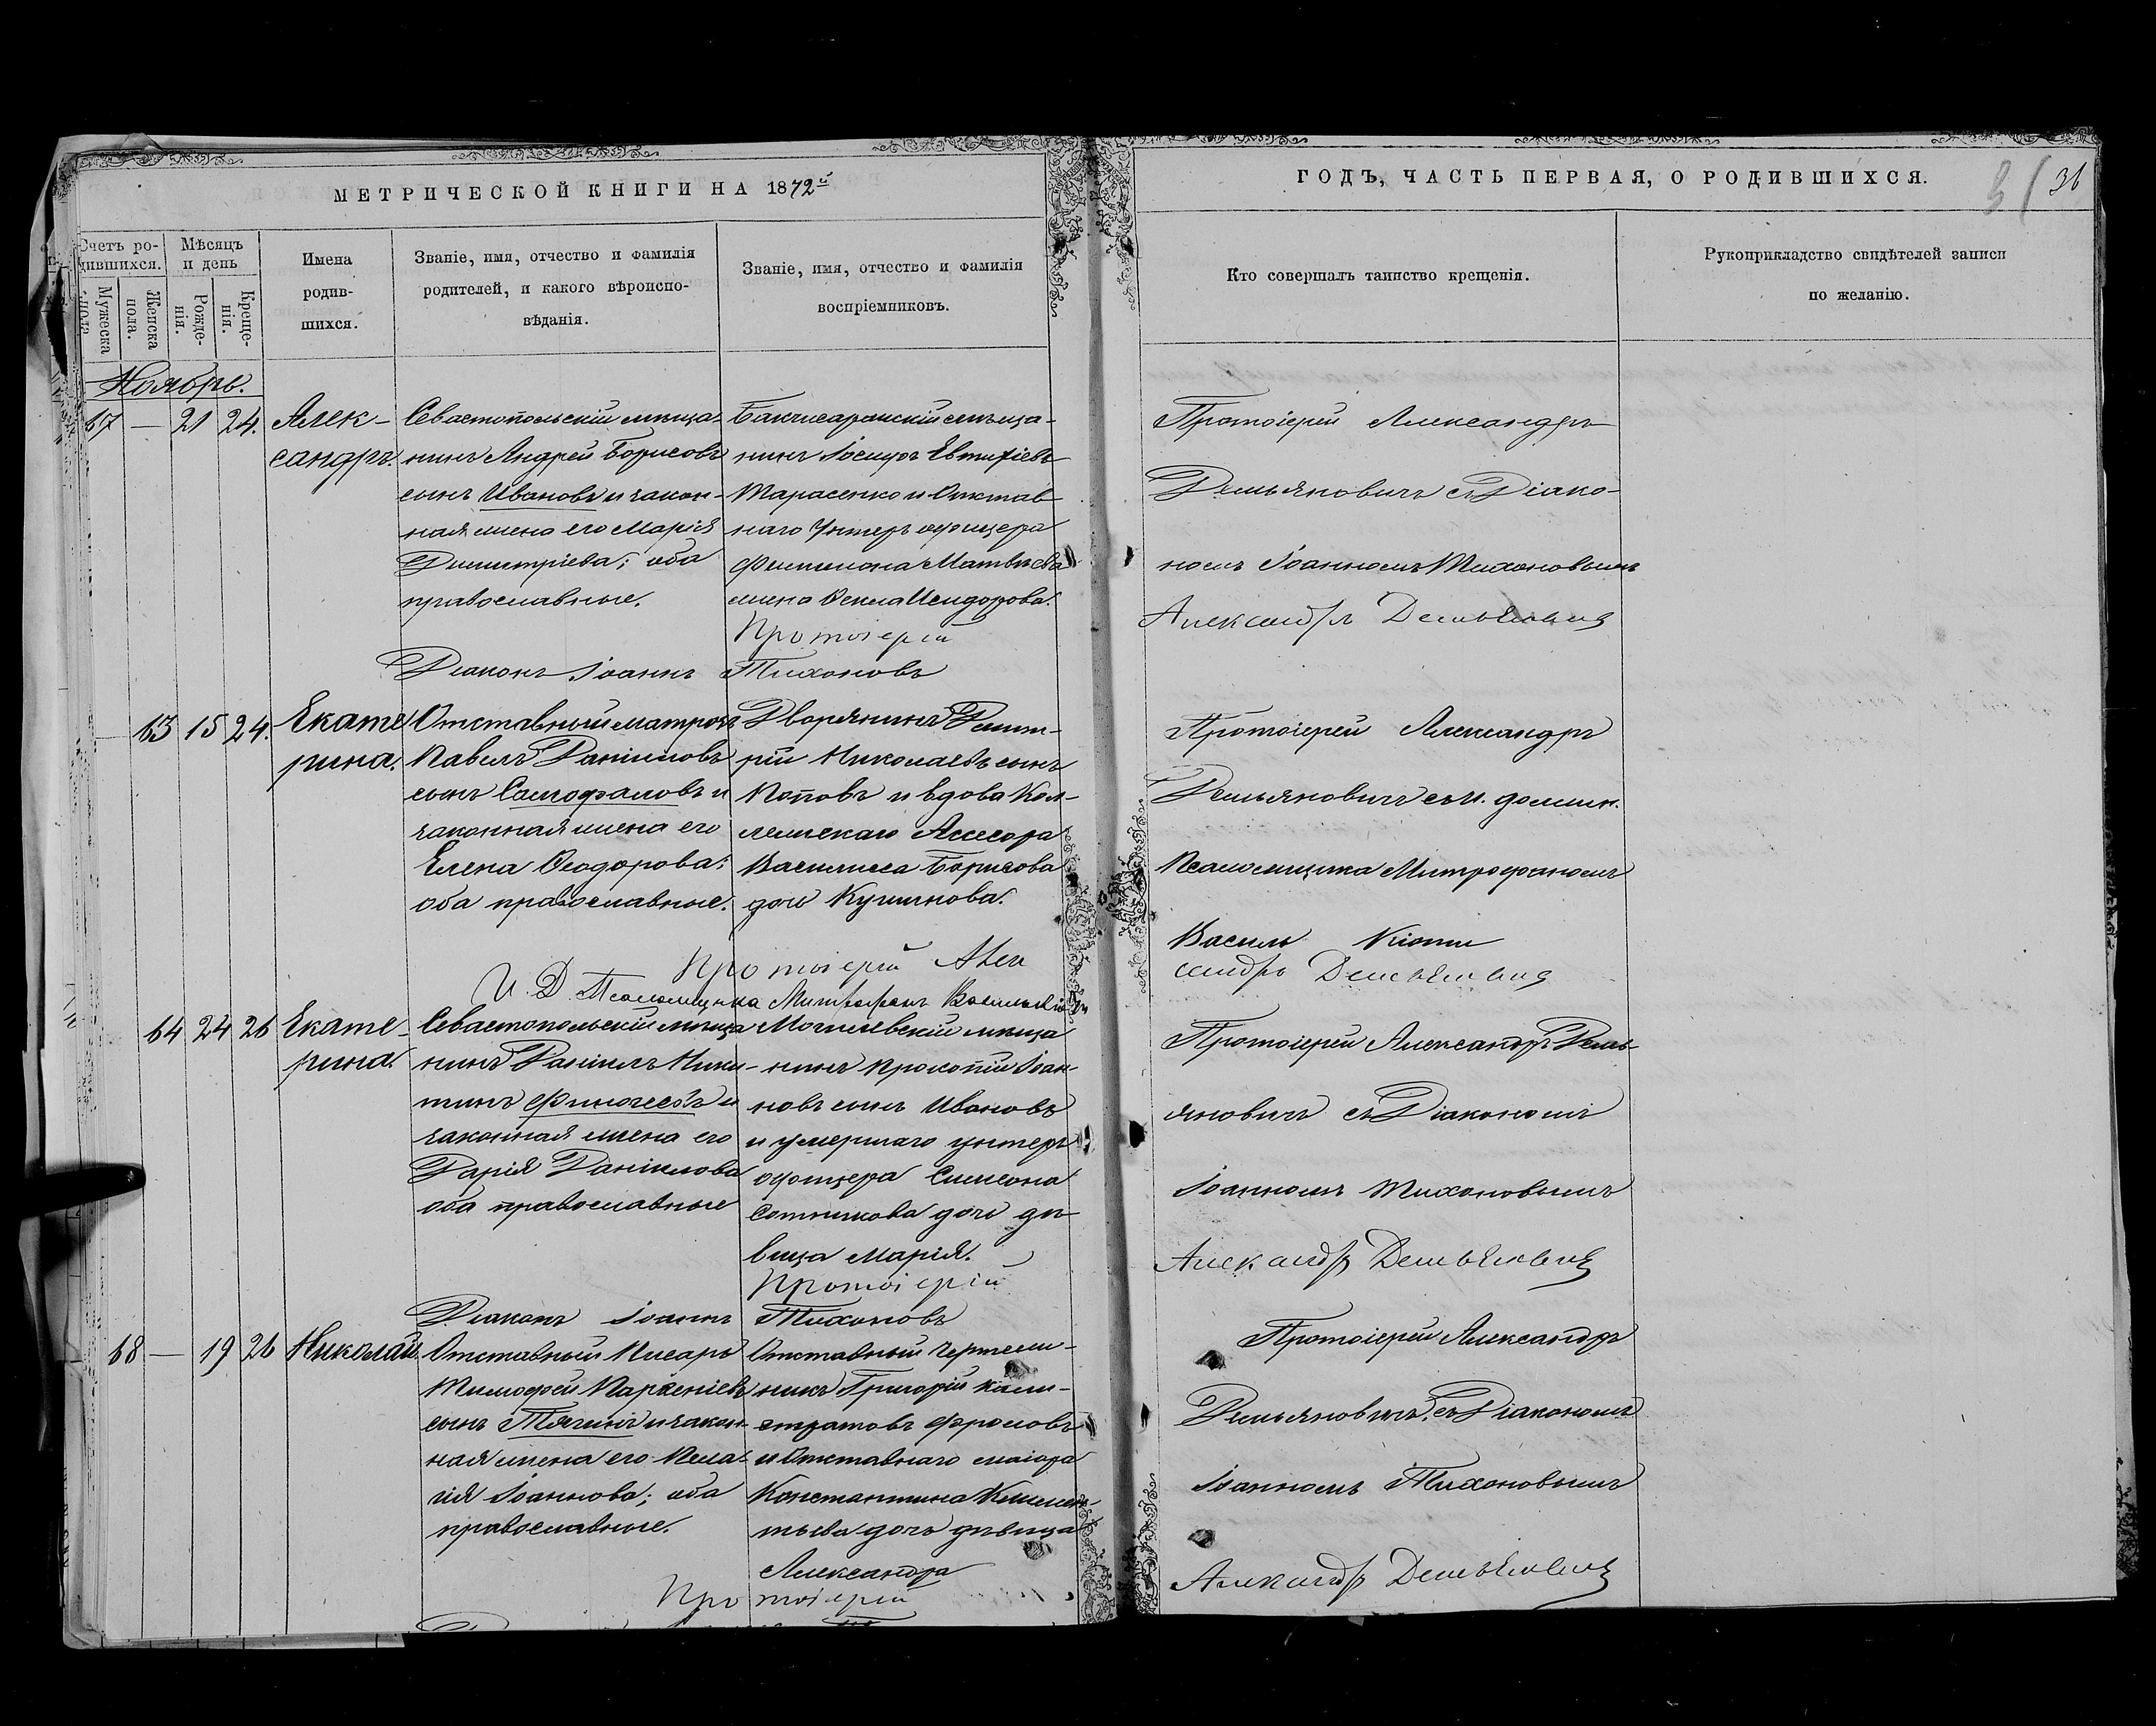 МЕТРИЧЕСКОЙ КНИГИ НА 1872й
ГОДЪ, ЧАСТЬ ПЕРВАЯ, О РОДИВШИХСЯ.
31
36
Счетъ родившихся.
Мужеска пола.
Женска пола.
Мѣсяцъ и день
Рожденія.
Крещенія.
Имена
родив-
шихся.
Званіе, имя, отчество и фамилія
родителей, и какого вѣроиспо-
вѣданія.
Званіе, имя, отчество и фамилія
воспріемниковъ.
Кто совершалъ таинство крещенія.
Рукоприкладство свидѣтелей записи
по желанію.
Ноябрь.
67 — 21 24.
Алек-
сандръ.
Севастопольскій мѣща-
нинъ Андрей Борисовъ
сынъ Ивановъ и закон-
ная жена его Марія
Димитріева; оба
православные.
Бакчисарайскій мѣща-
нинъ Іосифъ Евтихіевъ
Тарасенко и Отстав
наго Унтеръ офицера
Филимона Матвѣева
жена Ѳекла Исидорова.
Протоіерей Александръ
Демьяновичъ съ Діако-
номъ Іоанномъ Тихоновымъ
Протоіерей Александръ Демьяновичъ
Діаконъ Іоаннъ Тихоновъ
63 15 24.
Екате
рина.
Отставный матросъ
Павелъ Даніиловъ
сынъ Самофаловъ и
законная жена его
Елена Ѳеодорова;
оба православные.
Дворянинъ Димит-
рій Николаевъ сынъ
Поповъ и вдова Кол-
лежскаго Ассесора
Василисса Борисова
дочь
Протоіерей Александръ
Демьяновичъ съ И. должн.
Псаломщика Митрофаномъ
Протоіерей Александръ Демьяновичъ
И. Д. Псаломщика Митрофанъ
64 24 26
Екате-
рина.
Севастопольскій мѣща
нинъ Даніилъ Ники-
тинъ и
законная жена его
Дарія Даніилова
оба православные
Могилевскій мѣща
нинъ Прокопій Іоан-
новъ сынъ Ивановъ
и умершаго унтеръ
офицера Симеона
Сотникова дочь дѣ-
вица Марія.
Протоіерей Александръ Демь-
яновичъ съ Діакономъ
Іоанномъ Тихоновымъ
Протоіерей Александръ Демьяновичъ
Діаконъ Іоаннъ Тихоновъ
68 — 19 26
Николай.
Отставный Писарь
Тимофей Парѳеніевъ
сынъ и закон-
ная жена его Пела-
гія Іоаннова; оба
православные.
Отставный Чертеж-
никъ Григорій Кали-
стратовъ Фроловъ
и Отставнаго маіора
Константина Климен-
тьева дочь дѣвица
Александра
Протоіерей Александръ
Демьяновичъ, съ Діакономъ
Іоанномъ Тихоновымъ
Протоіерей Александръ Демьяновичъ